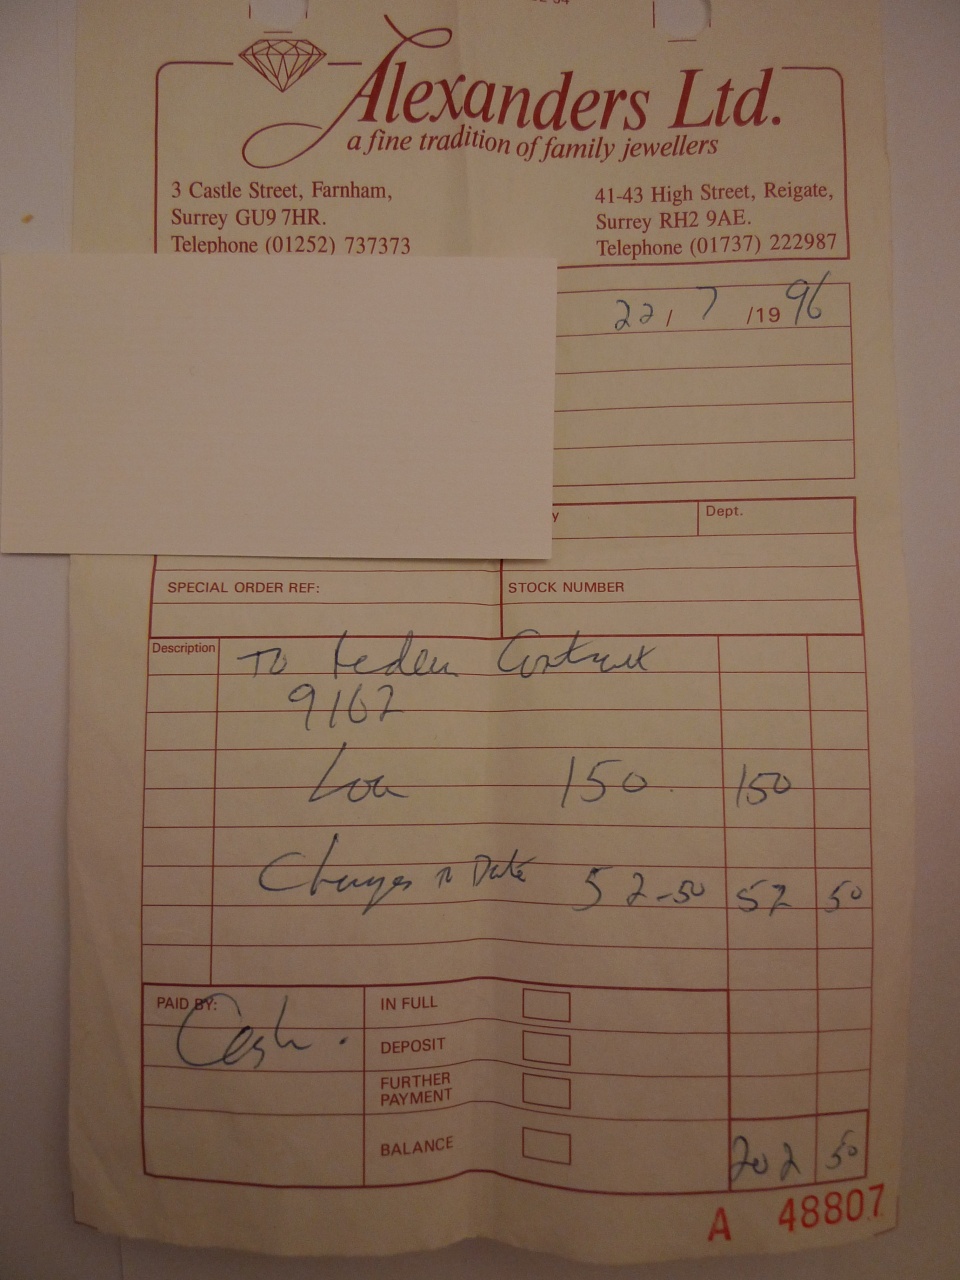 Alexanders Ltd.
a fine tradition of family jewellers
3 Castle Street, Farnham,
Surrey GU9 7HR.
Telephone (01252) 737373
41-43 High Street, Reigate,
Surrey RH2 9AE.
Telephone (01737) 222987
22 / 7 /19 96
y
Dept.
SPECIAL ORDER REF:
STOCK NUMBER
Description
TO Redeem Contract
9162
Loan 150. 150
Charges to Date 52-50 52 50
PAID BY:
Cash.
IN FULL
DEPOSIT
FURTHER
PAYMENT
BALANCE
202 50
A 48807